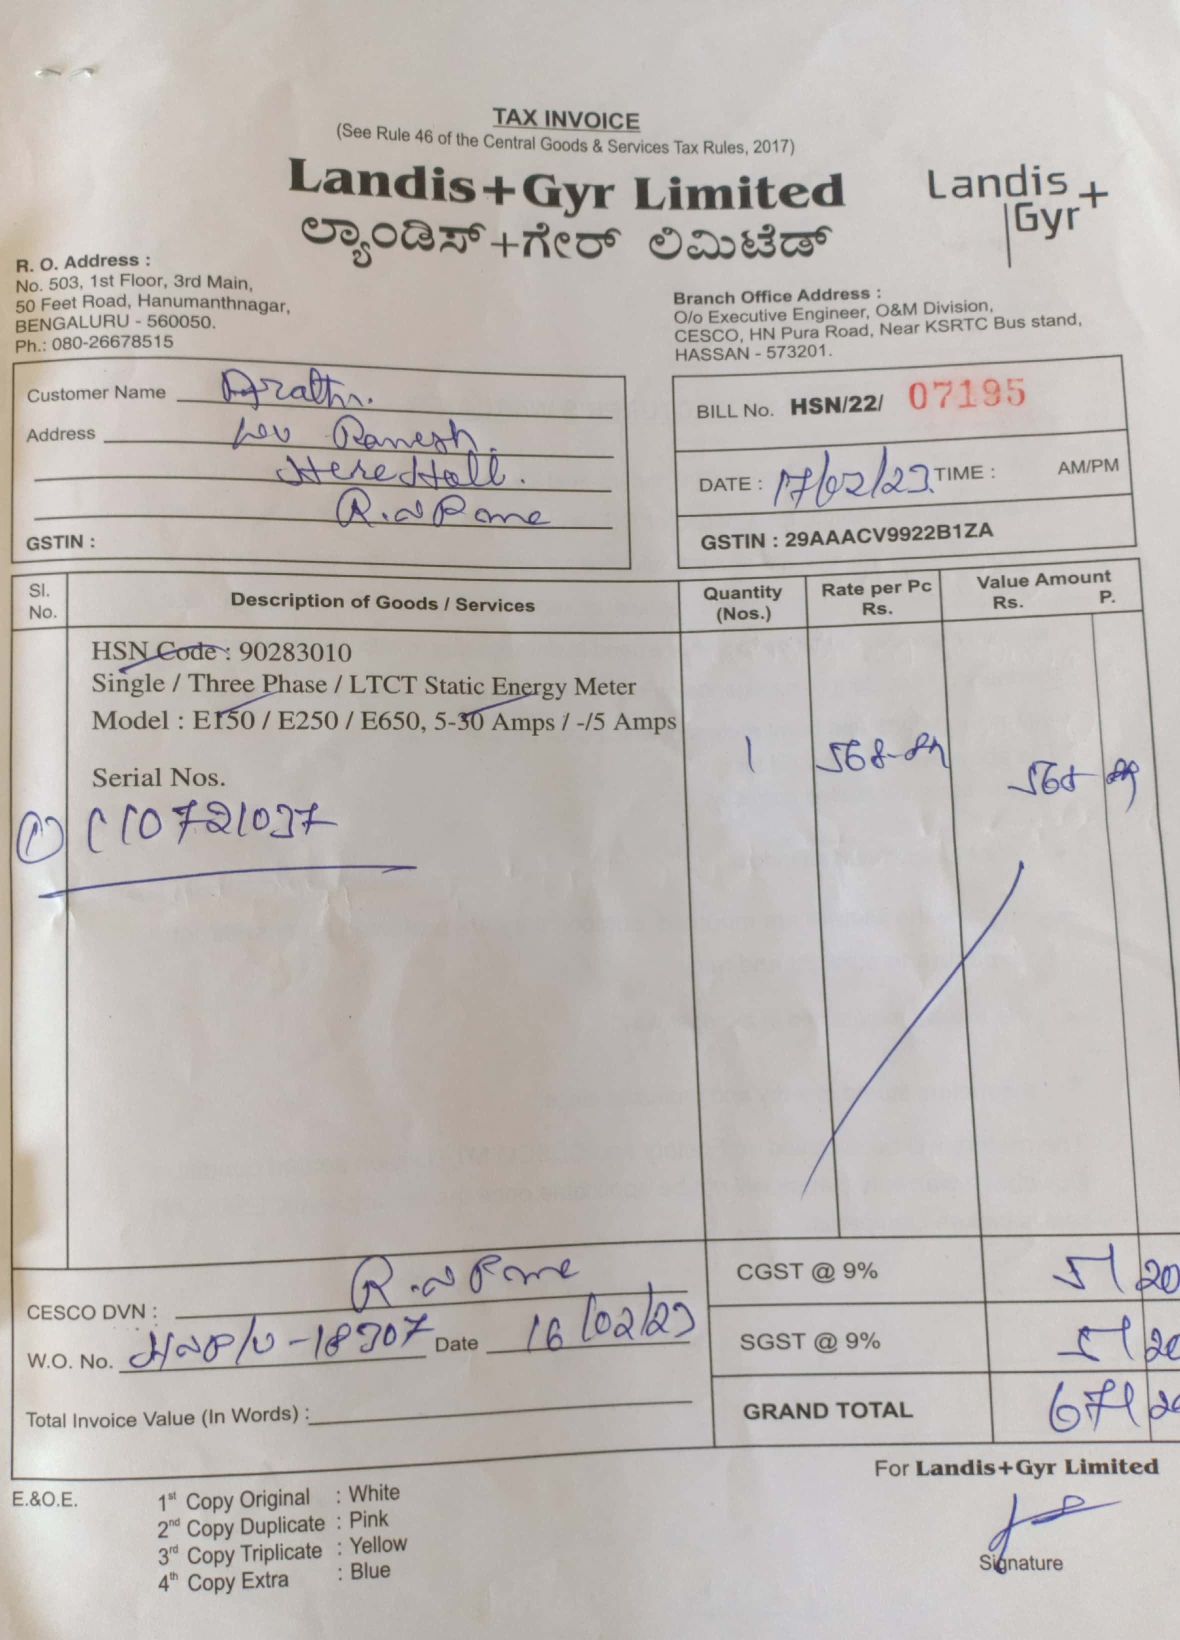 TAX INVOICE
(See Rule 46 of the Central Goods & Services Tax Rules, 2017)
Landis+Gyr Limited
ಲ್ಯಾಂಡಿಸ್+ಗೇರ್ ಲಿಮಿಟೆಡ್
Landis
Gyr+
R. O. Address :
No. 503, 1st Floor, 3rd Main,
50 Feet Road, Hanumanthnagar,
BENGALURU - 560050.
Ph.: 080-26678515
Branch Office Address :
O/o Executive Engineer, O&M Division,
CESCO, HN Pura Road, Near KSRTC Bus stand,
HASSAN - 573201.
Customer Name
Address
GSTIN :
BILL No. HSN/22/ 07195
DATE : 17/02/23 TIME : AM/PM
GSTIN : 29AAACV9922B1ZA
Sl. No. Description of Goods / Services Quantity (Nos.) Rate per Pc Rs. Value Amount Rs. P.
HSN Code : 90283010
Single / Three Phase / LTCT Static Energy Meter
Model : E150 / E250 / E650, 5-30 Amps / -/5 Amps
1
Serial Nos.
CESCO DVN :
W.O. No. Date 16/02/23
Total Invoice Value (In Words) :
CGST @ 9% 51 20
SGST @ 9% 51 20
GRAND TOTAL 671
For Landis+Gyr Limited
E.&O.E.
1st Copy Original : White
2nd Copy Duplicate : Pink
3rd Copy Triplicate : Yellow
4th Copy Extra : Blue
Signature